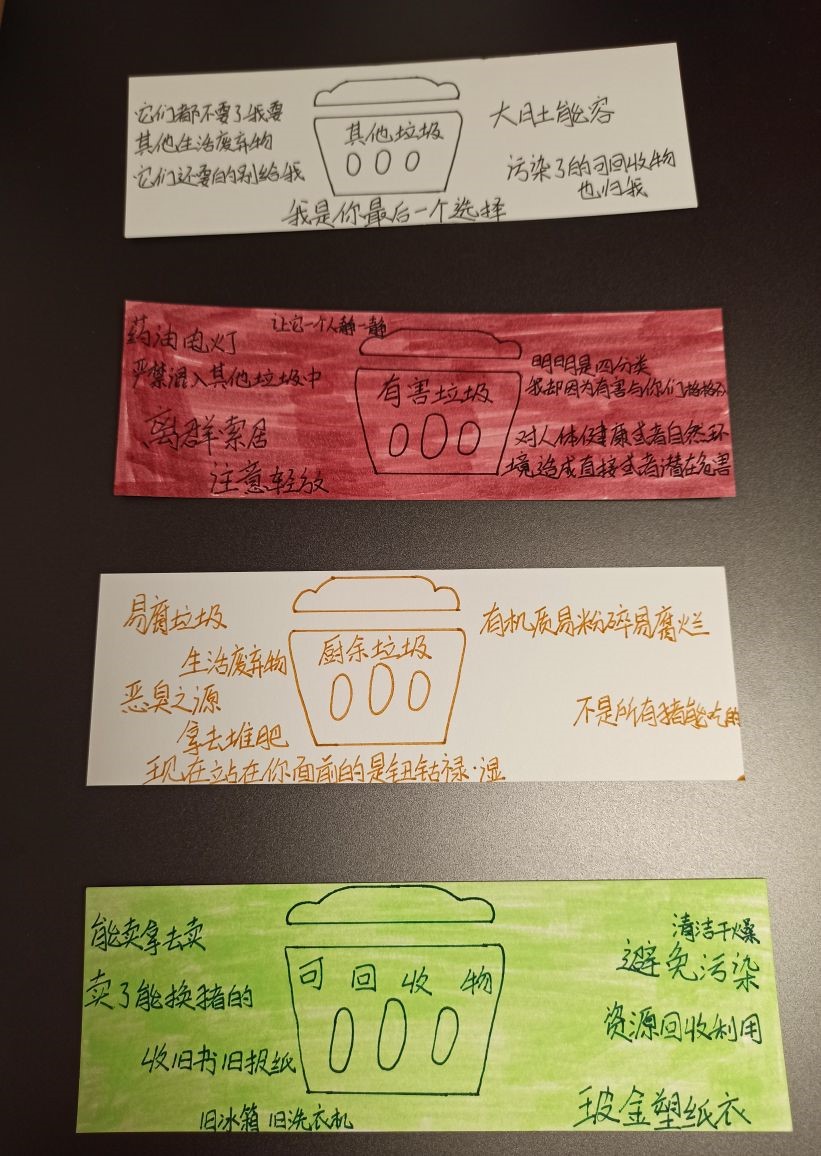 它们都不要了我要
其他生活废弃物
它们还要的别给我
其他垃圾
大肚能容
污染了的可回收物
也归我
我是你最后一个选择
药油电灯
让它一个人静一静
严禁混入其他垃圾中
离群索居
注意轻放
有害垃圾
明明是四分类
我却因为有害与你们格格不
对人体健康或者自然环
境造成直接或者潜在危害
易腐垃圾
生活废弃物
恶臭之源
拿去堆肥
厨余垃圾
有机质易粉碎易腐烂
不是所有猪能吃的
现在站在你面前的是钮钴禄·湿
能卖拿去卖
卖了能换猪的
收旧书旧报纸
旧冰箱 旧洗衣机
可回收物
清洁干燥
避免污染
资源回收利用
玻金塑纸衣